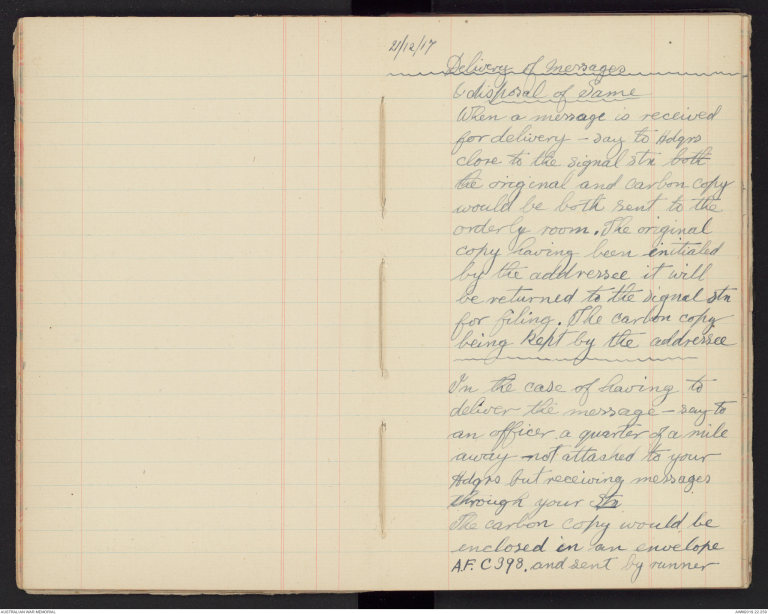 21/12/17
Delivery of Messages
& disposal of Same
When a message is received
for delivery – say to Hdqrs
close to the signal stn both
the original and carbon copy
would be both sent to the
orderly room. The original
copy having been initialed
by the addressee it will
be returned to the signal stn
for filing. The carbon copy
being kept by the addressee
In the case of having to
deliver the message – say to
an officer a quarter of a mile
away not attached to your
Hdqrs but receiving messages
through your Stn
The carbon copy would be
enclosed in an envelope
A.F. C398. and sent by runner
AUSTRALIAN WAR MEMORIAL